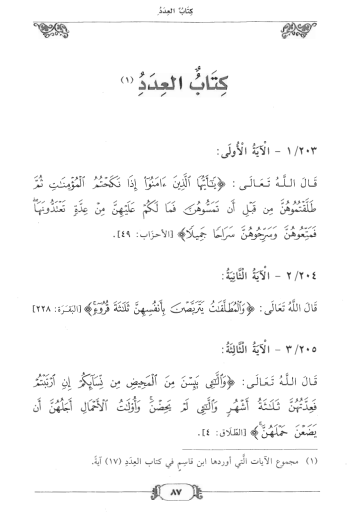 كِتَابُ العِدَدِ
كِتَابُ العِدَدِ (١)
١/٢٠٣ - الْآيَةُ الْأُولَى:
قَالَ اللَّهُ تَعَالَى: ﴿يَٰٓأَيُّهَا ٱلَّذِينَ ءَامَنُوٓا۟ إِذَا نَكَحْتُمُ ٱلْمُؤْمِنَٰتِ ثُمَّ
طَلَّقْتُمُوهُنَّ مِن قَبْلِ أَن تَمَسُّوهُنَّ فَمَا لَكُمْ عَلَيْهِنَّ مِنْ عِدَّةٍ تَعْتَدُّونَهَا ۖ
فَمَتِّعُوهُنَّ وَسَرِّحُوهُنَّ سَرَاحًا جَمِيلًا﴾ [الأحزاب: ٤٩].
٢/٢٠٤ - الْآيَةُ الثَّانِيَةُ:
قَالَ اللَّهُ تَعَالَى: ﴿وَٱلْمُطَلَّقَٰتُ يَتَرَبَّصْنَ بِأَنفُسِهِنَّ ثَلَٰثَةَ قُرُوٓءٍ ۚ﴾ [البَقَرَة: ٢٢٨]
٣/٢٠٥ - الْآيَةُ الثَّالِثَةُ:
قَالَ اللَّهُ تَعَالَى: ﴿وَٱلَّٰٓـِٔى يَئِسْنَ مِنَ ٱلْمَحِيضِ مِن نِّسَآئِكُمْ إِنِ ٱرْتَبْتُمْ
فَعِدَّتُهُنَّ ثَلَٰثَةُ أَشْهُرٍ وَٱلَّٰٓـِٔى لَمْ يَحِضْنَ ۚ وَأُو۟لَٰتُ ٱلْأَحْمَالِ أَجَلُهُنَّ أَن
يَضَعْنَ حَمْلَهُنَّ ۚ﴾ [الطّلَاق: ٤].
(١) مجموع الآيات الَّتي أوردها ابن قاسم في كتاب العِدَدِ (١٧) آيةً.
٨٧